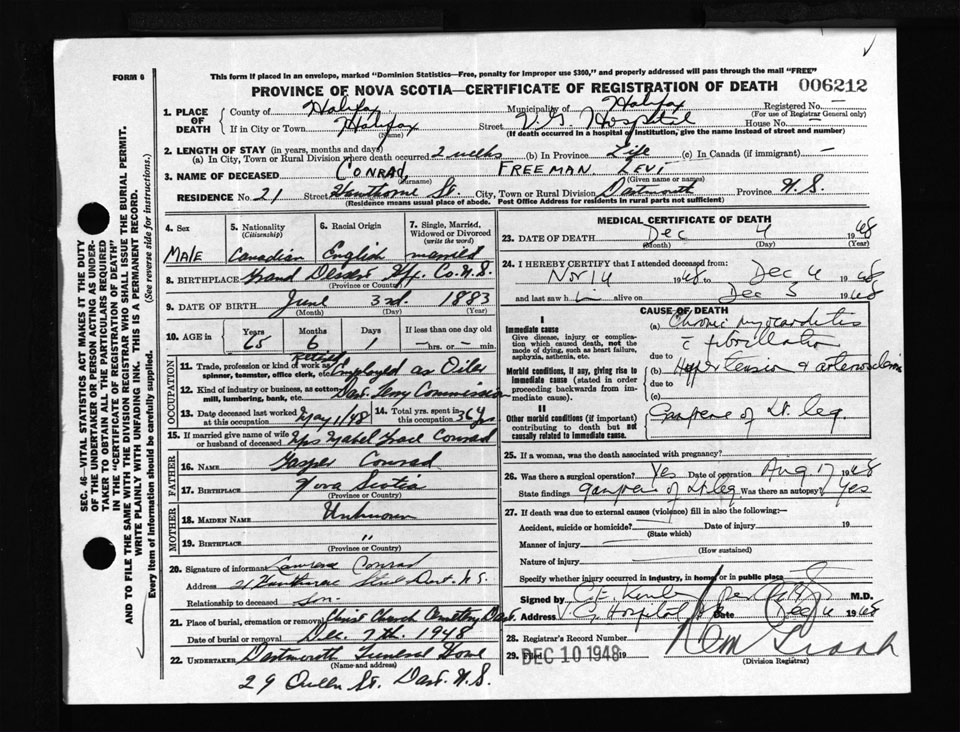 FORM 6
This form if placed in an envelope, marked "Dominion Statistics—Free, penalty for improper use $300," and properly addressed will pass through the mail "FREE"
PROVINCE OF NOVA SCOTIA—CERTIFICATE OF REGISTRATION OF DEATH
006212
1. PLACE OF DEATH
County of Halifax Municipality of Halifax Registered No. —
(For use of Registrar General only)
If in City or Town Halifax Street V. G. Hospital House No. —
(Name) (If death occurred in a hospital of institution, give the name instead of street and number)
2. LENGTH OF STAY (in years, months and days)
(a) In City, Town or Rural Division where death occurred 2 weeks (b) In Province Life (c) In Canada (if immigrant) —
3. NAME OF DECEASED CONRAD, FREEMAN LEVI
(Surname) (Given name or names)
RESIDENCE No. 21 Street Hawthorne St. City, Town or Rural Division Dartmouth Province N.S.
(Residence means usual place of abode. Post Office Address for residents in rural parts not sufficient)
4. Sex MALE
5. Nationality (Citizenship) Canadian
6. Racial Origin English
7. Single, Married, Widowed or Divorced (write the word) married
8. BIRTHPLACE Grand Desert Hfx. Co. N.S.
(Province or Country)
9. DATE OF BIRTH June 3rd. 1883
(Month) (Day) (Year)
10. AGE in Years 65 Months 6 Days 1 If less than one day old — hrs. or — min.
OCCUPATION
11. Trade, profession or kind of work as spinner, teamster, office clerk, etc. Retired Employed as Oiler
12. Kind of industry or business, as cotton mill, lumbering, bank, etc. Dart. Ferry Commission
13. Date deceased last worked at this occupation May 1/48
14. Total yrs. spent in this occupation 36 yrs
15. If married give name of wife or husband of deceased Mrs Conrad
FATHER
16. Name Gasper Conrad
17. Birthplace Nova Scotia
(Province or Country)
MOTHER
18. MAIDEN NAME Unknown
19. BIRTHPLACE "
(Province or Country)
20. Signature of informant Lawrence Conrad
Address 21 Hawthorne Street Dart. N.S.
Relationship to deceased Son.
21. Place of burial, cremation or removal Christ Church Cemetery Dart.
Date of burial or removal Dec. 7th. 1948
22. UNDERTAKER Dartmouth Funeral Home
(Name and address)
29 Queen St. Dart. N.S.
MEDICAL CERTIFICATE OF DEATH
23. DATE OF DEATH Dec 4 1948
(Month) (Day) (Year)
24. I HEREBY CERTIFY that I attended deceased from:
Nov 14 1948 to Dec 4 1948
and last saw h im alive on Dec 3 1948
CAUSE OF DEATH
I
Immediate cause
Give disease, injury or complication which caused death, not the mode of dying, such as heart failure, asphyxia, asthenia, etc.
(a) Chronic myocarditis c fibrillation
due to
Morbid conditions, if any, giving rise to immediate cause (stated in order proceeding backwards from immediate cause)
(b) Hypertension & arteriosclerosis
due to
(c)
II
Other morbid conditions (if important) contributing to death but not causally related to immediate cause.
Gangrene of Lt. leg.
25. If a woman, was the death associated with pregnancy?
26. Was there a surgical operation? Yes Date of operation Aug 17 1948
State findings gangrene of Lt leg Was there an autopsy? Yes
27. If death was due to external causes (violence) fill in also the following:—
Accident, suicide or homicide? Date of injury 19
(State which)
Manner of injury
(How sustained)
Nature of injury
Specify whether injury occurred in industry, in home or in public place
Signed by M.D.
Address V. G. Hospital Date Dec 4 1948
28. Registrar's Record Number
29. Filed DEC 10 1948 19
(Division Registrar)
SEC. 46—VITAL STATISTICS ACT MAKES IT THE DUTY OF THE UNDERTAKER OR PERSON ACTING AS UNDERTAKER TO OBTAIN ALL THE PARTICULARS REQUIRED IN THE "CERTIFICATE OF REGISTRATION OF DEATH" AND TO FILE THE SAME WITH THE DIVISION REGISTRAR WHO SHALL ISSUE THE BURIAL PERMIT.
WRITE PLAINLY WITH UNFADING INK. THIS IS A PERMANENT RECORD.
Every item of Information should be carefully supplied. (See reverse side for instructions.)